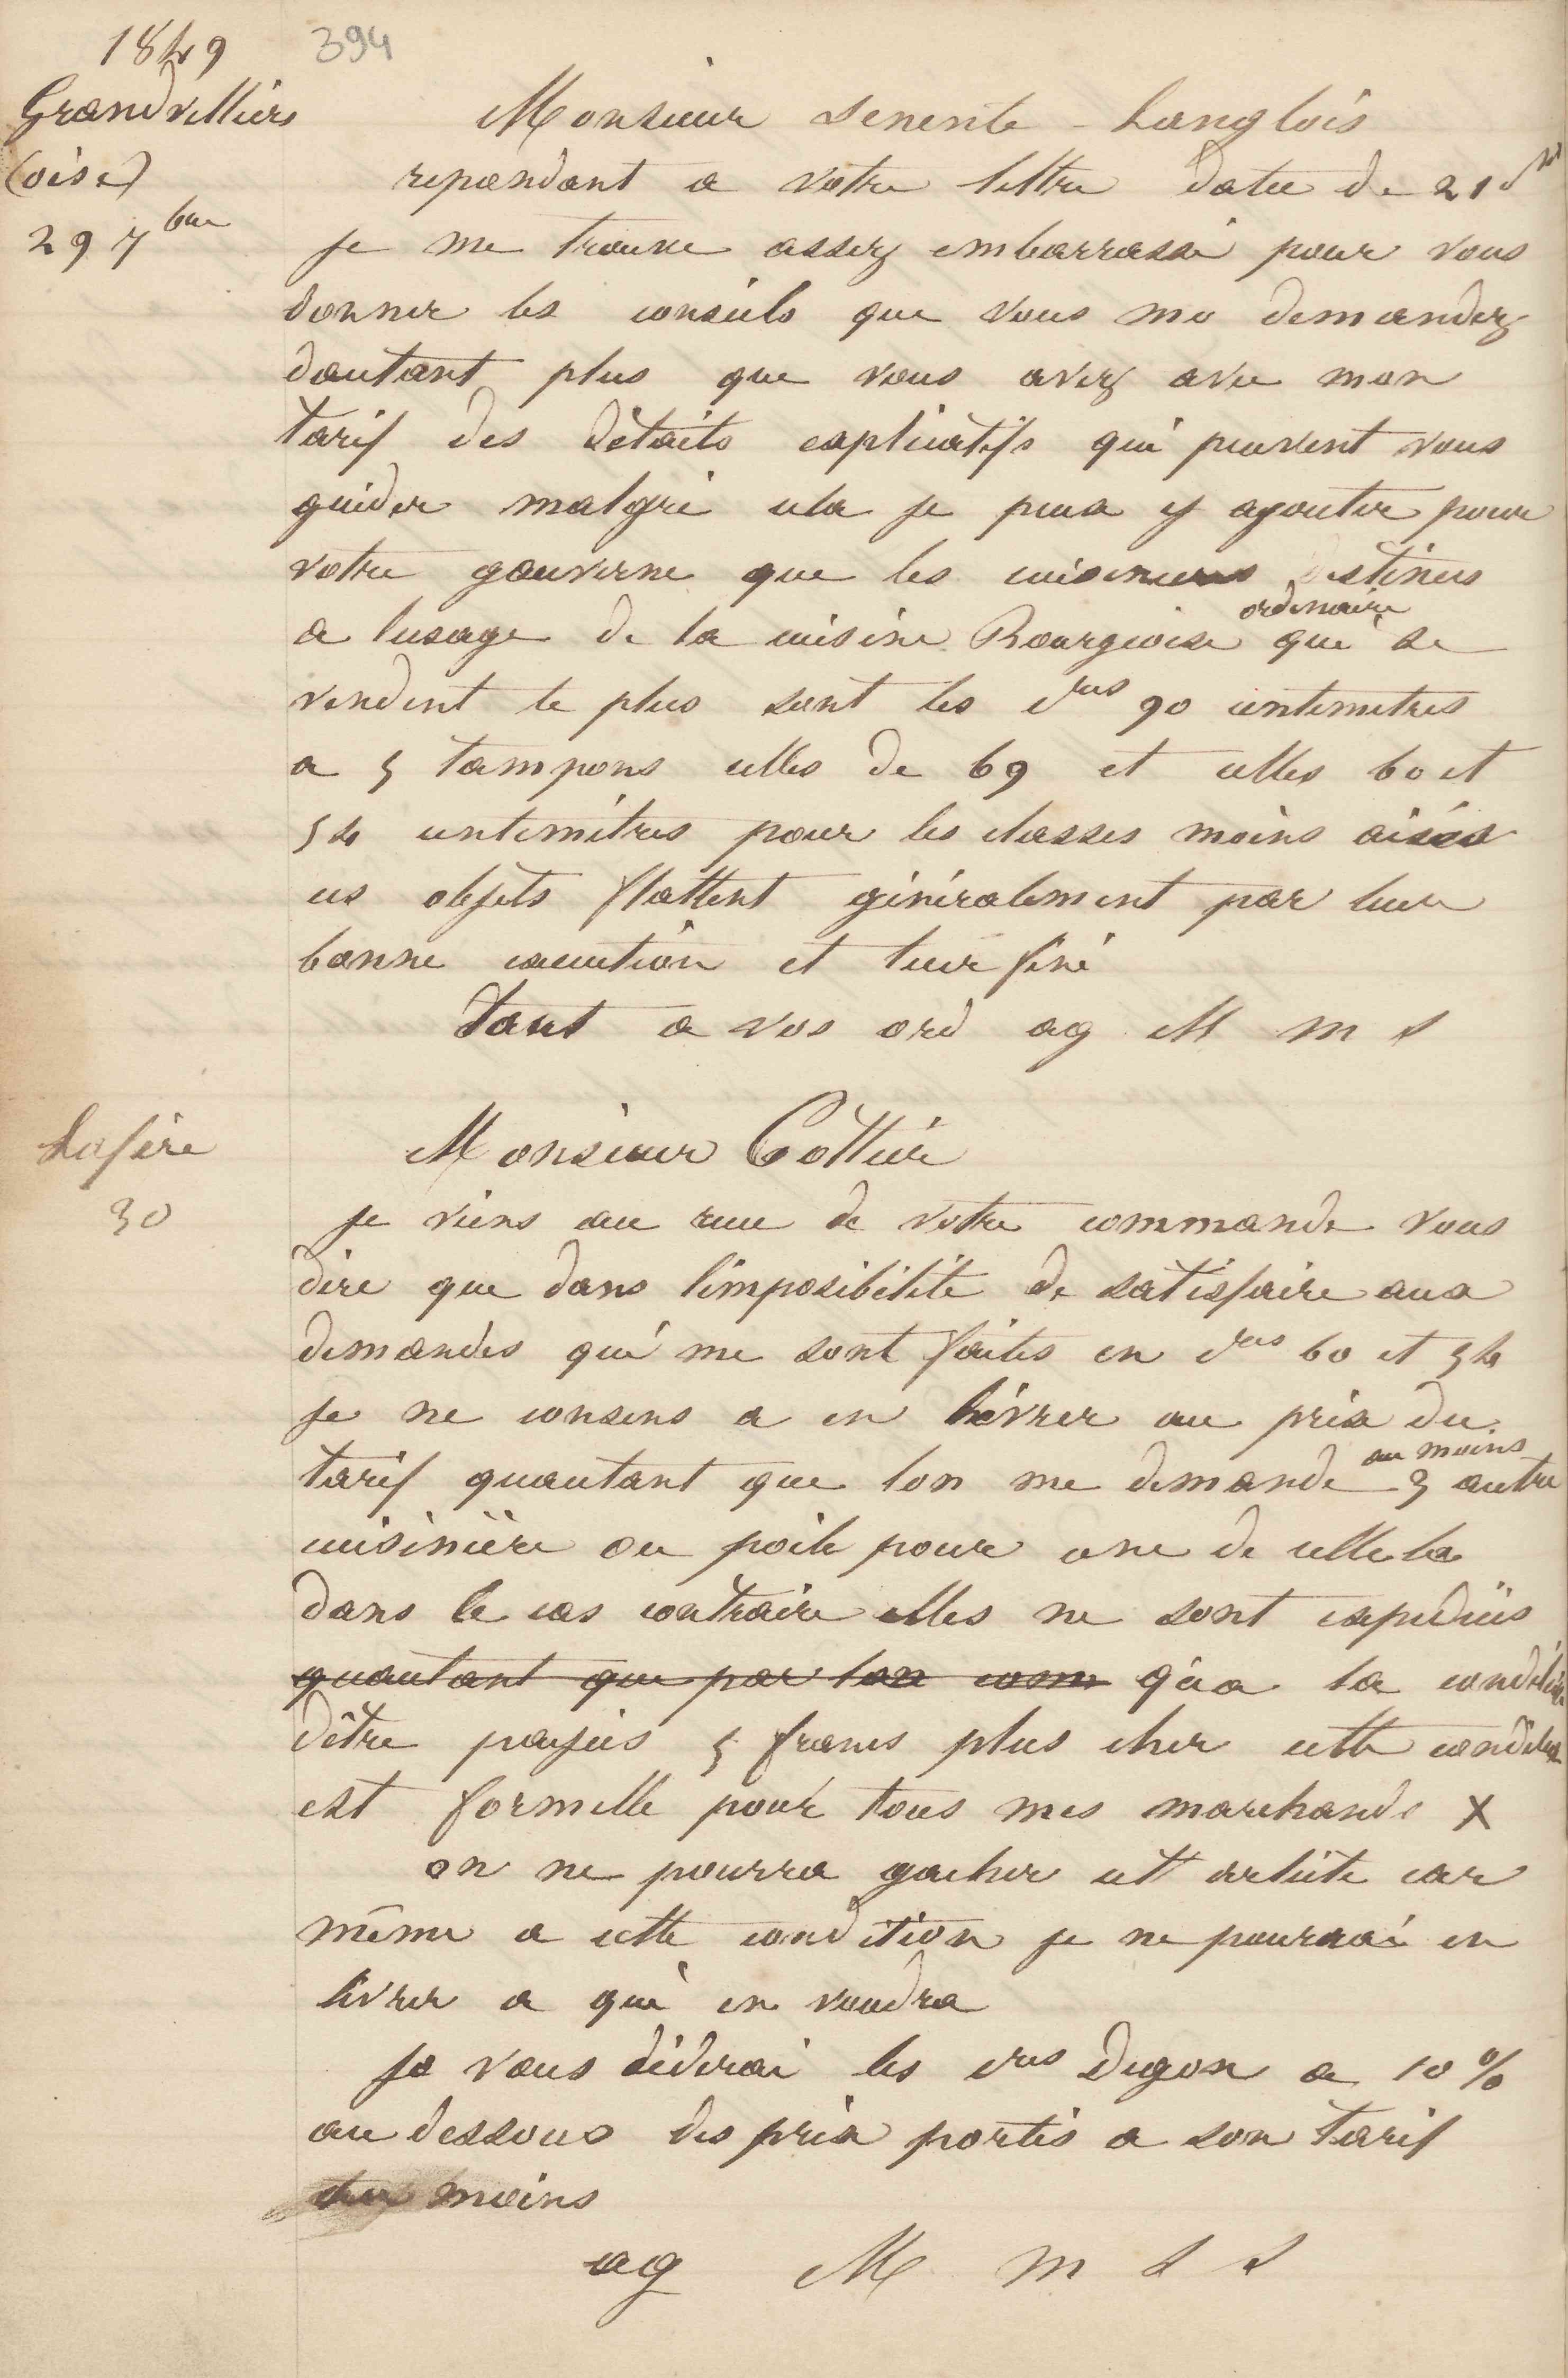 1849
394
Grandvilliers
(oise)
29 7bre
Monsieur Senente-Langlois
repondant a votre lettre datee de 21 dr
je me trouve assez embarrassé pour vous
donner les conseils que vous me demandez
dautant plus que vous avez avec mon
tarif des détails explicatifs qui peuvent vous
guider malgré cela je puis y ajouter pour
votre gouverne que les cuisinieres destinees
ordinaire
a lusage de la cuisine Bourgeoise qui se
vendent le plus sont les cres 90 centimetres
a 5 tampons celles de 69 et celles 60 et
54 centimètres pour les classes moins aisées
ces objets flattent généralement par leur
bonne execution et leur fini
tout a vos ord ag M m s
Lafère
30
Monsieur Cottié
je viens au recu de votre commande vous
dire que dans limposibilité de satisfaire aux
demandes qui me sont faites en cres 60 et 54
je ne consens a en livrer au prix du
au moins
tarif quautant que lon me demande 3 autre
cuisinière ou poile pour une de celle la
dans le cas contraire elles ne sont expediées
quautant que par lon com qua la condition
dêtre payées 5 francs plus cher cette condition
est formelle pour tous mes marchands X
on ne pourra gacher cet article car
même a cette condition je ne pourrai en
livrer a qui en voudra
je vous cèderai les cres Degon a 10 %
au dessous des prix portés a son tarif
au moins
ag M m s s